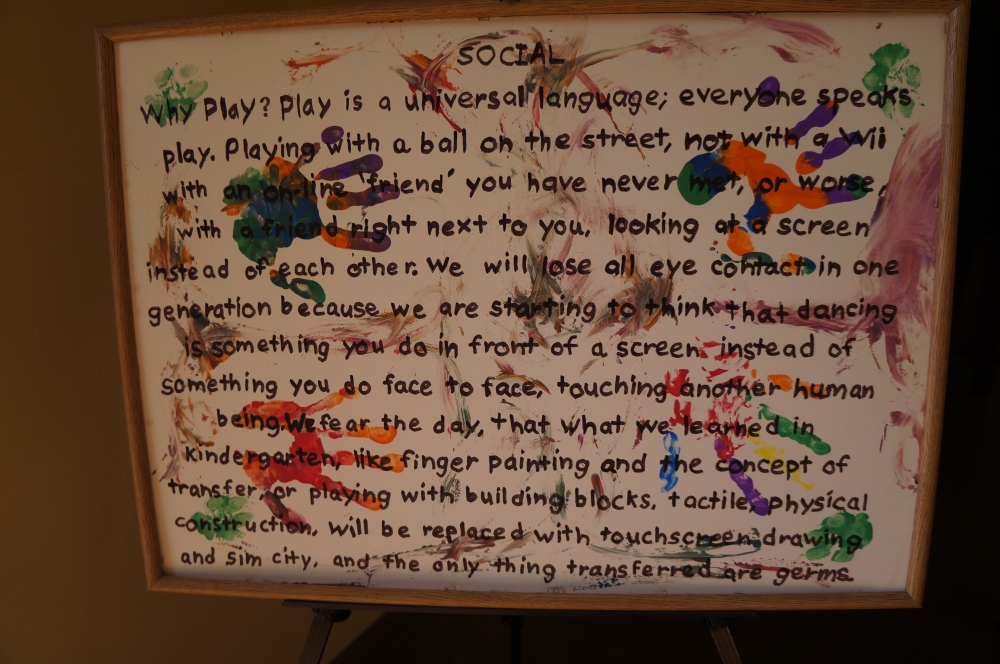 SOCIAL
Why Play? Play is a universal language; everyone speaks
play. Playing with a ball on the street, not with a Wii
with an on-line 'friend' you have never met, or worse,
with a friend right next to you, looking at a screen
instead of each other. We will lose all eye contact in one
generation because we are starting to think that dancing
is something you do in front of a screen, instead of
something you do face to face, touching another human
being. We fear the day, that what we learned in
Kindergarten, like finger painting and the concept of
transfer, or playing with building blocks, tactile, physical
construction, will be replaced with touchscreen drawing
and sim city, and the only thing transferred are germs.